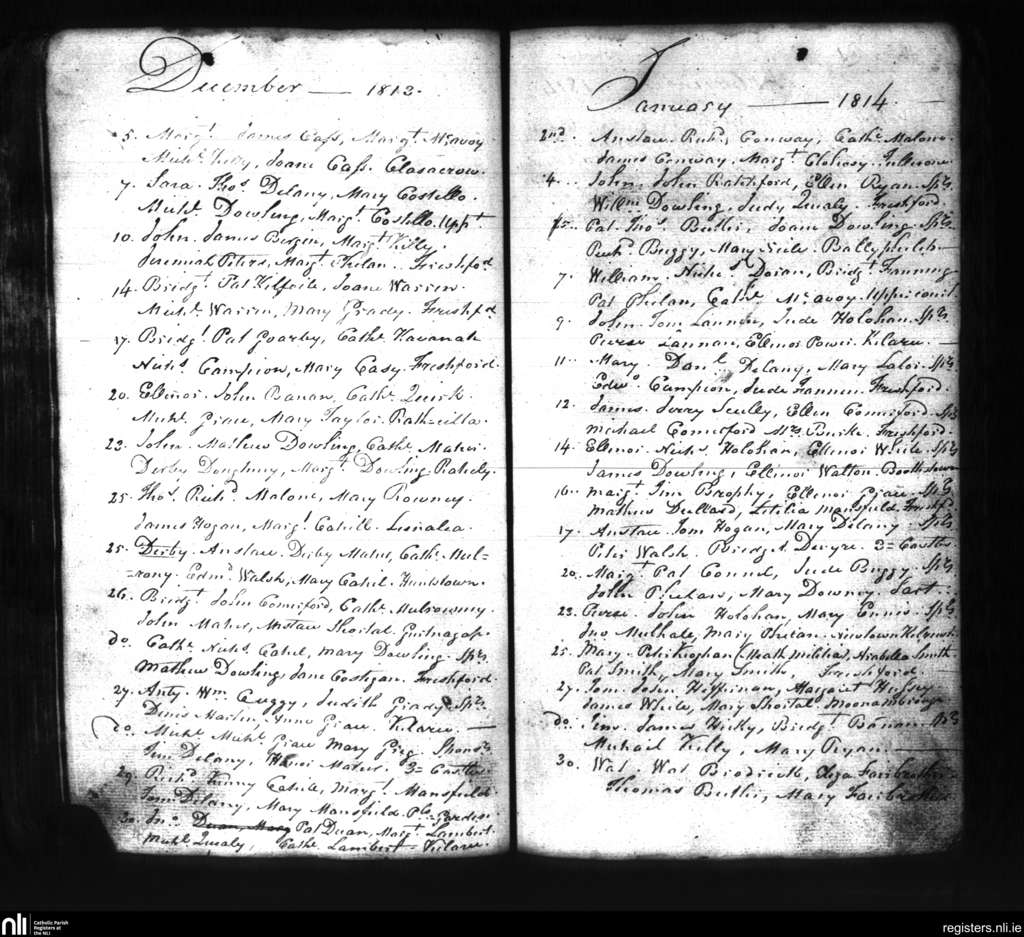 December — 1813.
5. Margt. James Cass, Margt. McAvoy
Michl. Kelly, Joane Cass. Clasacrow.
7. Sara. Thos. Delany, Mary Costello.
Michl. Dowling, Margt. Costello. Uppt
10. John. James Bergin, Margt. Kelly.
Jeremiah Peters, Margt. Phelan. Freshfod
14. Bridgt. Pat Kilfoile, Joane Warren.
Michl. Warren, Mary Grady. Freshfd
17. Bridgt. Pat Goarby, Cathe. Kavanah
Nichs. Campion, Mary Casy. Freshford.
20. Ellinor. John Banan, Cathe. Quirk.
Michl. Grau, Mary Taylor.
23. John. Mathew Dowling, Cathe. Maher.
Derby Doughney, Margt. Dowling.
25. Thos. Richd. Malone, Mary Rowney.
James Hogan, Margt. Cahill.
25. Derby. Anstace. Derby Maher, Cathe. Mul-
-rony. Edmd. Walsh, Mary Cahil. Huntstown.
26. Bridgt. John Commiford, Cathe. Mulrowny.
John Maher, Anstace Shortal.
do. Cathe. Nichs. Cahil, Mary Dowling. Sprs.
Mathew Dowling, Jane Costigan. Freshford.
27. Anty. Wm. Cuggy, Judith Grady. Sprs.
Denis Harlin, Anne Grau. Kilaru. —
do. Michl. Michl. Grau Mary
Jim Delany, Maher, 3= Castles.
29. Richd. Kenny Cahile, Margt. Mansfield.
Tom Delany, Mary Mansfield.
30. Jno. Duan, Mary Pat Duan, Margt. Lambert.
Michl. Quealy, Cathe. Lambert = Kilaru.
January — 1814.
2nd. Anstace. Richd. Conway, Cathe. Malone.
James Conway, Margt. Clohosy.
4... John. John Ratchford, Ellen Ryan. Sprs.
Willm. Dowling, Judy Quealy. Freshford.
Pat. Thos. Butler, Joane Dowling. Sprs.
Richd. Buggy, Mary Ballyphilih.
7. William. Nichs. Doran, Bridgt. Fanning
Pat Phelan, Cathe. McAvoy. Uppercourt.
9. John. Tom Lannin, Jude Holohan. Sprs.
Pierse Lannan, Ellinor Power. Kilaru. —
11... Mary. Danl. Delany, Mary Lalor. Sprs.
Edwd. Campion, Jude Fannen. Freshford.
12. James. Jerry Scully, Ellen Commiford. Sprs
Michael Comerford Mrs. Freshford.
14. Ellinor. Nichs. Holohan, Ellinor White. Sprs
James Dowling, Ellinor Walton.
16. Margt. Jim Brophy, Ellinor Grau. Sprs.
Mathew Dullard, Letitia Mansfield. Freshfd.
17. Anstace. Tom Hogan, Mary Delany Sprs
Peter Walsh. Bridget Dwyre. 3= Castles.
20. Margt. Pat Connel, Jude Buggy. Sprs
John Phelan, Mary Downey.
23. Pierse. John Holohan, Mary Ennis. Sprs
Jno. Mulhale, Mary Phelan.
25. Mary. Peter Keoghan (Meath Militia), Arabella Smith.
Pat Smith, Mary Smith, Freshford.
27. Tom. John Heffernan, Margaret Hussey
James White, Mary Shortal
do. Jim. James Hicky, Bridgt. Banan. Sprs
Michael Kelly, Mary Ryan. —
30. Wat. Wat Brodrick, Eliza Fairbrother
Thomas Butler, Mary Fairbrother
nli
Catholic Parish
Registers at
the NLI
registers.nli.ie